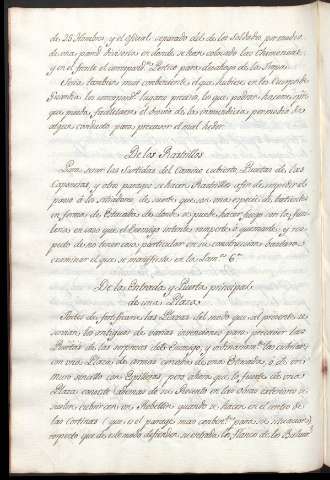 de 25 Hombres, y el oficial separado del de los Soldados por medio
de una pared traversia en donde se han colocado las Chimeneas,
y en frente el correspond.te Portico para desahogo de la Tropa.
Seria tambien mui combeniente, el que hubiese en los Cuerpos de
Guardia los correspond.tes lugares
que pueda, facilitarse el de las inmundicias por medio de
algun conducto para precaver el mal hedor.
De los Rastrillos
Para serrar las Surtidas del Camino cubierto, Puertas de las
Caponeras, y otros parages se hacen Rastrillos a fin de impedir el
paso a los de suerte que son una especie de batientes
en forma de Estacadas de donde se puede hacer fuego con la fusi-
leria en caso que el Enemigo intente romperle o quemarle, y res-
pecto de no tener cosa particular en su construccion bastara
examinar el que se manifiesta en la Lam.a 6.a
De la Entrada y Puerta principal
de una Plaza
Antes de fortificarse las Plazas del modo que al presente, se
servian los antiguos de varias invenciones para precaver las
Puertas de las sorpresas del Enemigo, y ordinariam.te las cubrian
con una Plaza de armas cerrada de una Estacada, o de un
muro sencillo con Aspilleras pero ahora que la fuerza de una
Plaza consiste ademas de su Recinto en las obras exteriores se
suelen cubrir con un Rebellin quando se hacen en el centro de
las Cortinas (que es el parage mas combe.te para su situacion)
respecto que de este modo defienden su entrada los flancos de los Baluar-